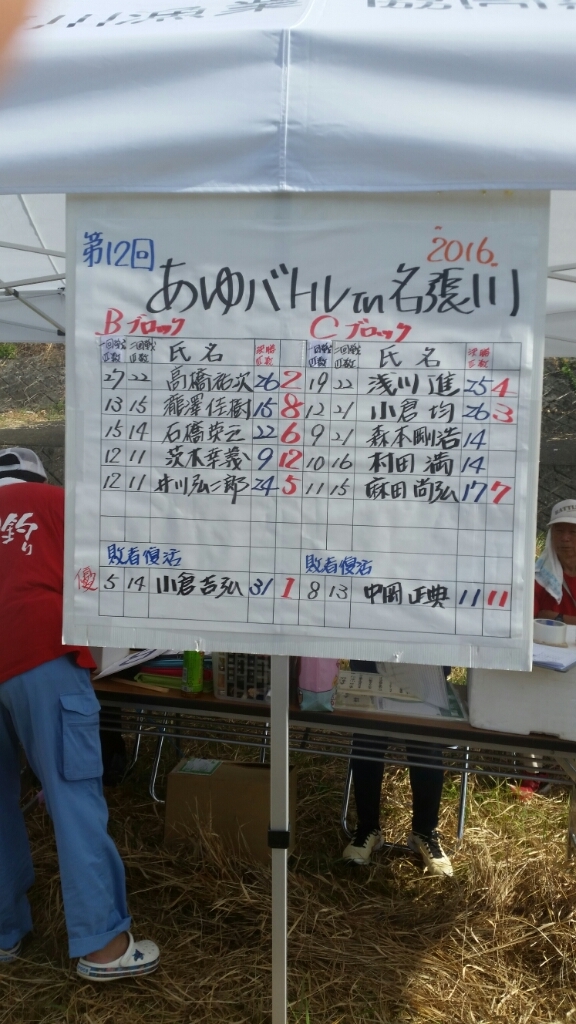 川漁業 協同
第12回 2016.
あゆバトルin名張川
Bブロック Cブロック
一回戦匹数 二回戦匹数 氏名 決勝匹数 一回戦匹数 二回戦匹数 氏名 決勝匹数
27 22 高橋祐次 26 2 19 22 浅川進 25 4
13 15 瀧澤佳樹 15 8 12 21 小倉均 26 3
15 14 石橋栄之 22 6 9 21 森本剛浩 14
12 11 茨木幸義 9 12 10 16 村田満 14
12 11 井川弘二郎 24 5 11 15 麻田尚弘 17 7
敗者復活 敗者復活
優 5 14 小倉吉弘 31 1 8 13 中岡正典 11 11
釣り